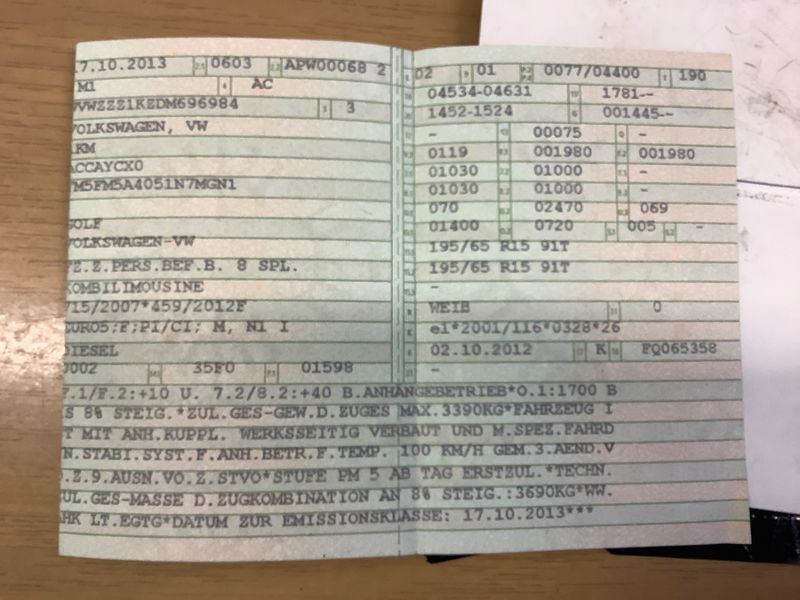 7.10.2013 2.1 0603 2.2 APW00068 2
M1 4 AC
VWZZZ1KZDM696984 3 3
VOLKSWAGEN, VW
1KM
ACCAYCX0
FM5FM5A4051N7MGN1
GOLF
VOLKSWAGEN-VW
FZ.Z.PERS.BEF.B. 8 SPL.
KOMBILIMOUSINE
715/2007*459/2012F
EURO5;F;PI/CI; M, N1 I
DIESEL
0002 14.1 35F0 P.1 01598
02 9 01 P.2 P.4 0077/04400 T 190
18 04534-04631 19 1781--
20 1452-1524 G 001445--
12 - 13 00075 Q -
V.7 0119 F.1 001980 F.2 001980
7.1 01030 7.2 01000 7.3 -
8.1 01030 8.2 01000 8.3 -
U.1 070 U.2 02470 U.3 069
O.1 01400 O.2 0720 S.1 005 S.2 -
15.1 195/65 R15 91T
15.2 195/65 R15 91T
15.3 -
R WEIß 11 0
K e1*2001/116*0328*26
6 02.10.2012 17 K 16 FQ065358
21 -
F.1/F.2:+10 U. 7.2/8.2:+40 B.ANHÄNGEBETRIEB*O.1:1700 B
S 8% STEIG.*ZUL.GES-GEW.D.ZUGES MAX.3390KG*FAHRZEUG I
T MIT ANH.KUPPL. WERKSSEITIG VERBAUT UND M.SPEZ.FAHRD
N.STABI.SYST.F.ANH.BETR.F.TEMP. 100 KM/H GEM.3.AEND.V
O.Z.9.AUSN.VO.Z.STVO*STUFE PM 5 AB TAG ERSTZUL.*TECHN.
ZUL.GES-MASSE D.ZUGKOMBINATION AN 8% STEIG.:3690KG*WW.
AHK LT.EGTG*DATUM ZUR EMISSIONSKLASSE: 17.10.2013***